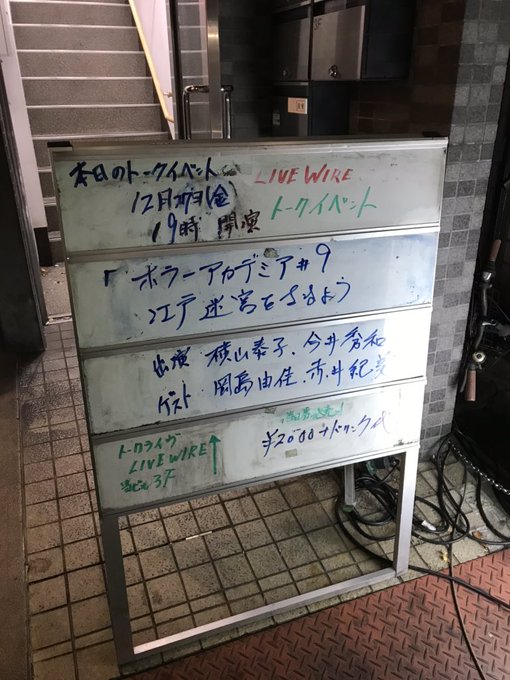 本日のトークイベント
LIVE WIRE
12月27日(金)
トークイベント
19時 開演
「ホラーアカデミア#9
江戸迷宮をさまよう
出演 横山泰子、今井秀和
ゲスト 岡島由佳、赤井紀美
当日券
¥2000+ドリンク代
トークライヴ
LIVE WIRE
当ビル3F
3F